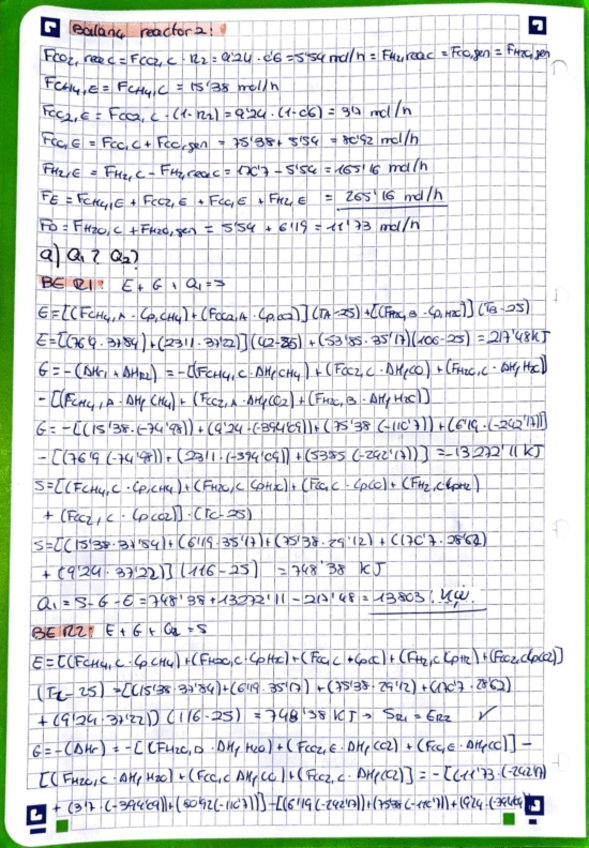 Balanç reactor 2:
FCO2, reac = FCO2, C · R2 = 9'24 · 0'6 = 5'54 mol/h = FH2, reac = FCO, gen = FH2O, gen
FCH4, E = FCH4, C = 15'38 mol/h
FCO2, E = FCO2, C · (1-R2) = 9'24 · (1-0'6) = 3'7 mol/h
FCO, E = FCO, C + FCO, gen = 75'38 + 5'54 = 80'92 mol/h
FH2, E = FH2, C - FH2, reac = 170'7 - 5'54 = 165'16 mol/h
FE = FCH4, E + FCO2, E + FCO, E + FH2, E = 265'16 mol/h
FD = FH2O, C + FH2O, gen = 5'54 + 6'19 = 11'73 mol/h
a) Q1? Q2?
BE R1: E + G + Q1 = S
E = [(FCH4, A · Cp, CH4) + (FCO2, A · Cp, CO2)] (TA-25) + [(FH2O, B · Cp, H2O)] (TB-25)
E = [(76'9 · 37'54) + (23'11 · 37'22)] (42-25) + (53'85 · 35'17) (106-25) = 217'48 KJ
G = -(ΔHr1 + ΔHr2) = -[(FCH4, C · ΔHf CH4) + (FCO2, C · ΔHf CO) + (FH2O, C · ΔHf H2O)]
- [(FCH4, A · ΔHf CH4) + (FCO2, A · ΔHf CO2) + (FH2O, B · ΔHf H2O)]
G = -[(15'38 · (-74'98)) + (9'24 · (-394'09)) + (75'38 (-110'7)) + (6'19 · (-242'17))]
- [(76'9 (-74'98)) + (23'11 · (-394'09)) + (53'85 (-242'17))] = -13272'11 KJ
S = [(FCH4, C · Cp, CH4) + (FH2O, C Cp H2O) + (FCO, C · Cp CO) + (FH2, C Cp H2)
+ (FCO2, C · Cp CO2)] · (TC-25)
S = [(15'38 · 37'54) + (6'19 · 35'17) + (75'38 · 29'12) + (170'7 · 28'62)
+ (9'24 · 37'22)] (116-25) = 748'38 KJ
Q1 = S - G - E = 748'38 + 13272'11 - 217'48 = 13803
BE R2: E + G + Q2 = S
E = [(FCH4, C · Cp CH4) + (FH2O, C · Cp H2O) + (FCO, C + Cp CO) + (FH2, C Cp H2) + (FCO2, C Cp CO2)]
(TC - 25) = [(15'38 · 37'54) + (6'19 · 35'17) + (75'38 · 29'12) + (170'7 · 28'62)
+ (9'24 · 37'22)] (116-25) = 748'38 KJ → SR1 = ER2 ✓
G = -(ΔHr) = -[(FH2O, D · ΔHf H2O) + (FCO2, E · ΔHf CO2) + (FCO, E · ΔHf CO)] -
[(FH2O, C · ΔHf H2O) + (FCO, C ΔHf CO) + (FCO2, C · ΔHf CO2)] = -[(11'73 · (-242'17)
+ (3'7 · (-394'09)) + (80'92 (-110'7))] - [(6'19 (-242'17)) + (75'38 (-110'7)) + (9'24 · (-394'09)